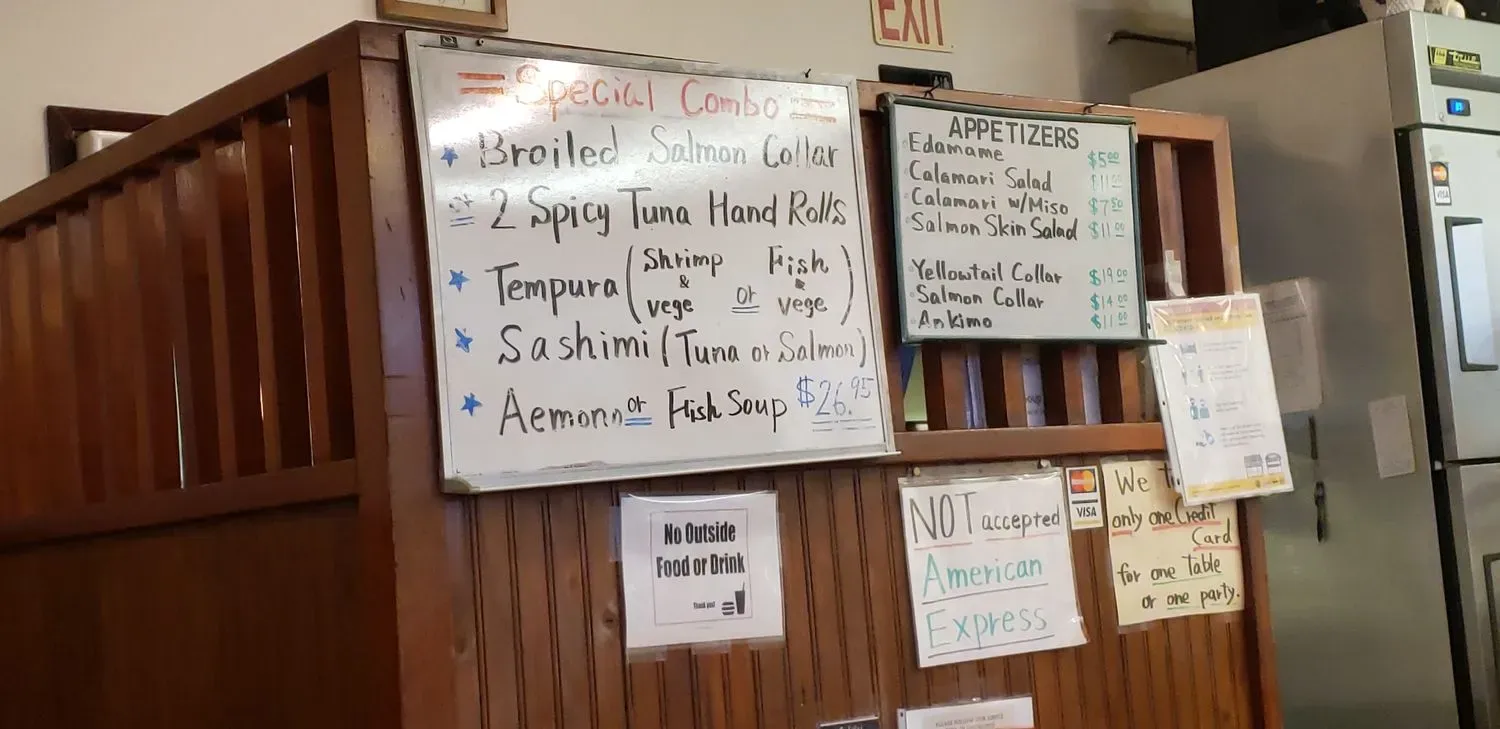 EXIT
Special Combo
Broiled Salmon Collar
or 2 Spicy Tuna Hand Rolls
Tempura (Shrimp & vege or Fish & vege)
Sashimi (Tuna or Salmon)
Aemono or Fish Soup $26.95
APPETIZERS
Edamame $5.00
Calamari Salad $11.00
Calamari w/Miso $7.50
Salmon Skin Salad $11.00
Yellowtail Collar $19.00
Salmon Collar $14.00
Ankimo $11.00
No Outside
Food or Drink
Thank you!
NOT accepted
American
Express
VISA
We
only one Credit
Card
for one Table
or one party.
true
VISA